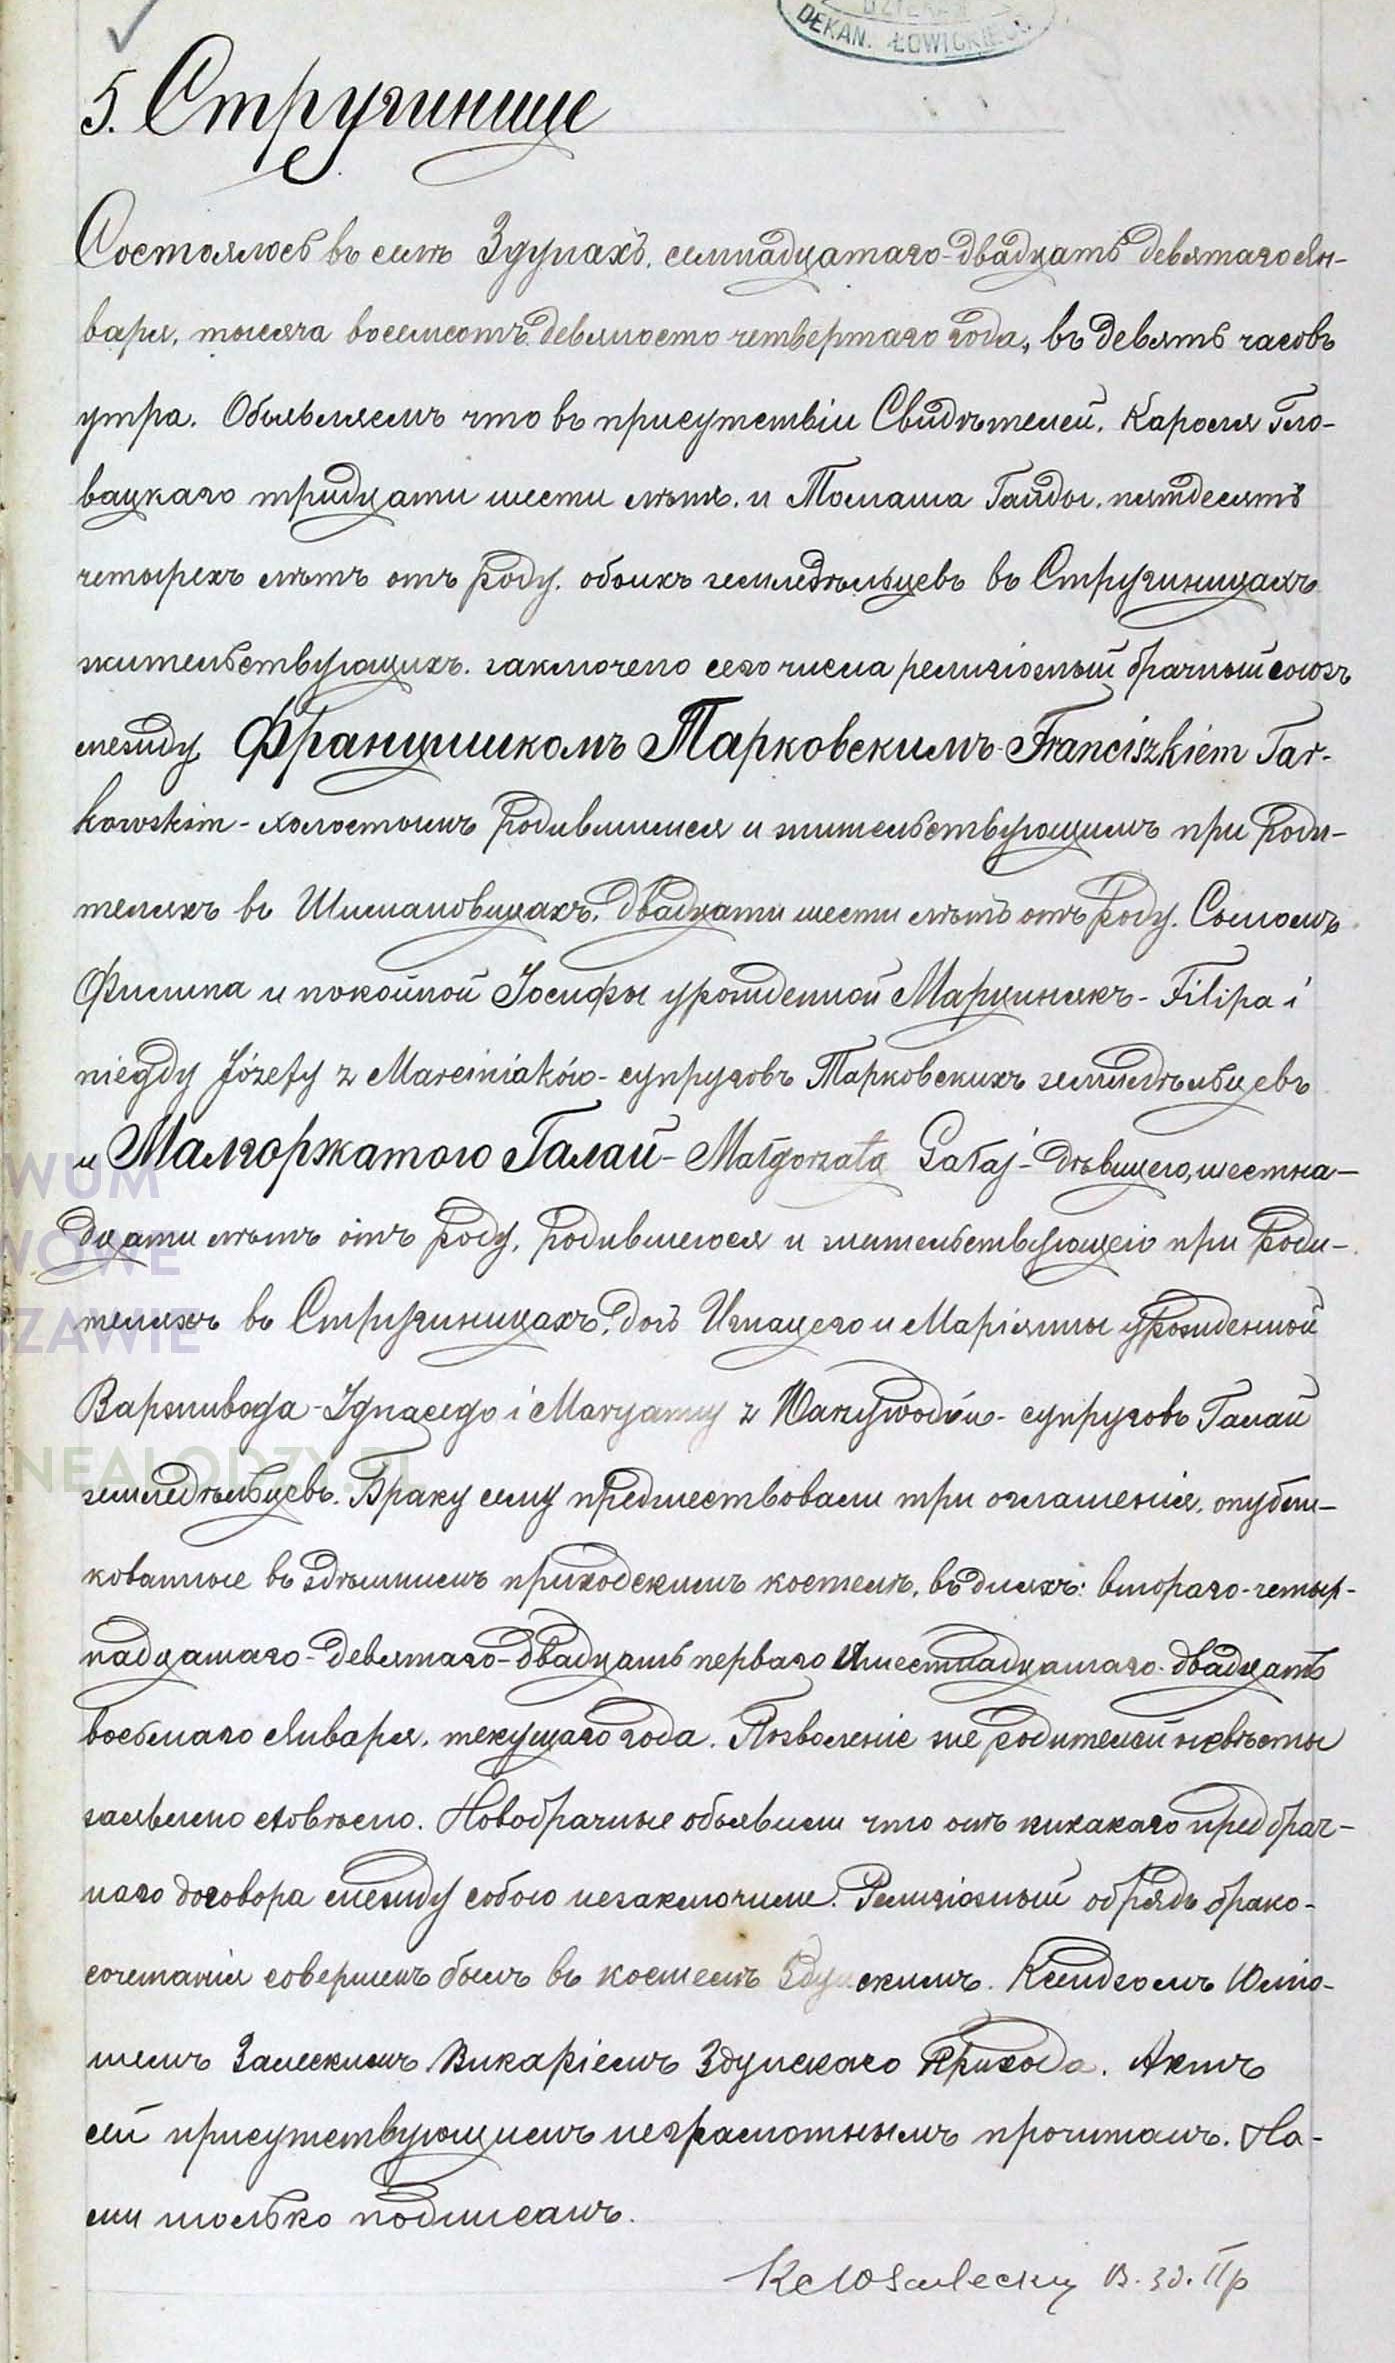 DZIEKAN
DEKAN. ŁOWICKIEGO
5. Стругинице
Состоялось въ селѣ Здунахъ, семнадцатаго-двадцать девятаго Ян-
варя, тысяча восемсотъ девяносто четвертаго года, въ девять часовъ
утра. Объявляемъ что въ присутствіи Свидѣтелей, Кароля Гло-
вацкаго тридцати шести лѣтъ, и Томаша Гайды, пятдесятъ
четырехъ лѣтъ отъ роду, обоихъ земледѣльцевъ въ Стругиницахъ
жительствующихъ, заключено сего числа религіозный брачный союзъ
между Францишкомъ Тарковскимъ-Franciszkiem Tar-
kowskim-холостымъ родившимся и жительствующимъ при роди-
теляхъ въ Шимановицахъ, двадцати шести лѣтъ отъ роду. Сыномъ
Филипа и покойной Іосифы урожденной Марцинякъ-Filipa i
niegdy Józefy z Marciniaków-супруговъ Тарковскихъ земледѣльцевъ
и Малгоржатою Галай-Małgorzatą Gałaj-дѣвицею, шестна-
дцати лѣтъ отъ роду, родившеюся и жительствующею при роди-
теляхъ въ Стругиницахъ, дочь Игнацего и Маріянны урожденной
Варживода-Ignacego i Maryanny z Warzywodów-супруговъ Галай
земледѣльцевъ. Браку сему предшествовали три оглашенія, опубли-
кованные въ здѣшнемъ приходскимъ костелѣ, въ дняхъ: втораго-четыр-
надцатаго-девятаго-двадцать перваго и шестнадцатаго-двадцать
восьмаго Января, текущаго года. Позволеніе же родителей невѣсты
заявлено словѣсно. Новобрачные объявили что онѣ никакаго предбрач-
наго договора между собою незаключили. Религіозный обрядъ брако-
сочетанія совершенъ былъ въ костелѣ Здунскимъ. Ксендзомъ Юлю-
шемъ Залескимъ Викаріемъ Здунскаго Прихода. Актъ
сей присутствующимъ неграмотнымъ прочитанъ. На-
ми только подписанъ.
WUM
WOWE
SZAWIE
NEALODZY.PL